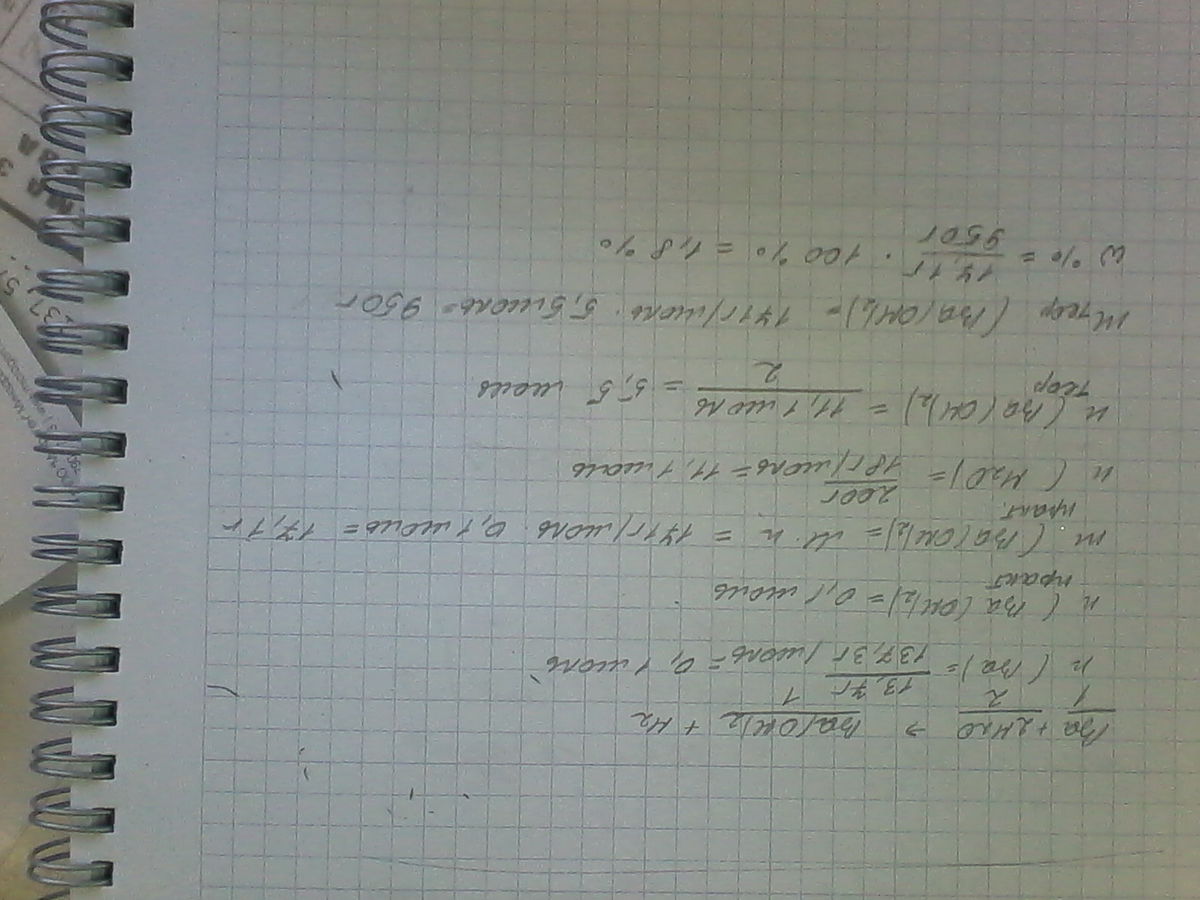 Ba + 2H2O → Ba(OH)2 + H2
1 2 1
n (Ba) = 13,7г / 137,3 г/моль = 0,1 моль
n практ (Ba(OH)2) = 0,1 моль
m практ. (Ba(OH)2) = M · n = 171г/моль · 0,1 моль = 17,1г
n (H2O) = 200г / 18г/моль = 11,1 моль
n теор (Ba(OH)2) = 11,1 моль / 2 = 5,5 моль
m теор (Ba(OH)2) = 171г/моль · 5,5 моль = 950г
ω% = 17,1г / 950г · 100% = 1,8%